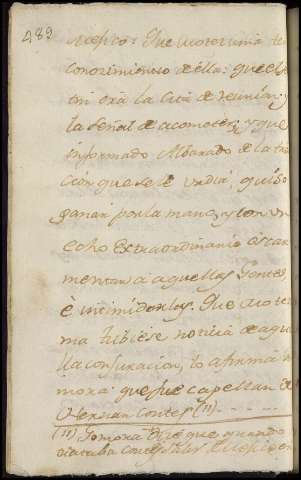 489
Mexico: Que Motezuma te
conocimiento de ella: que el
tri era la Cita de reunion, y
la señal de acometer; y que
informado Albarado de la tra
cion que se le urdia, quiso
ganar por la mano, y con un
echo extraordinario escar
mentar a aquellas Gentes,
è intimidarlas. Que Mote
ma tubiese noticia de aque
lla conjuracion, lo afirma
mora que fue capellan de
Hernan Cortes (11)
(11) Gomora dize que quando